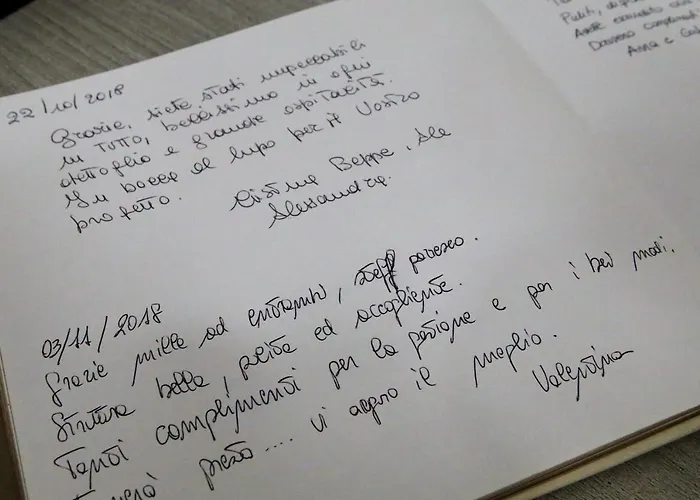 22/10/2018
Grazie, siete stati impeccabili
in tutto, bellissimo in ogni
dettaglio e grande ospitalità.
In bocca al lupo per il Vostro
progetto.
Beppe, Ale
Alessandra.
03/11/2018
Grazie mille ad entrambi, staff pazzesco.
Struttura bella, pulita ed accogliente.
Tanti complimenti per la passione e per i bei modi.
presto.... vi auguro il meglio.
Valentina
Anna e